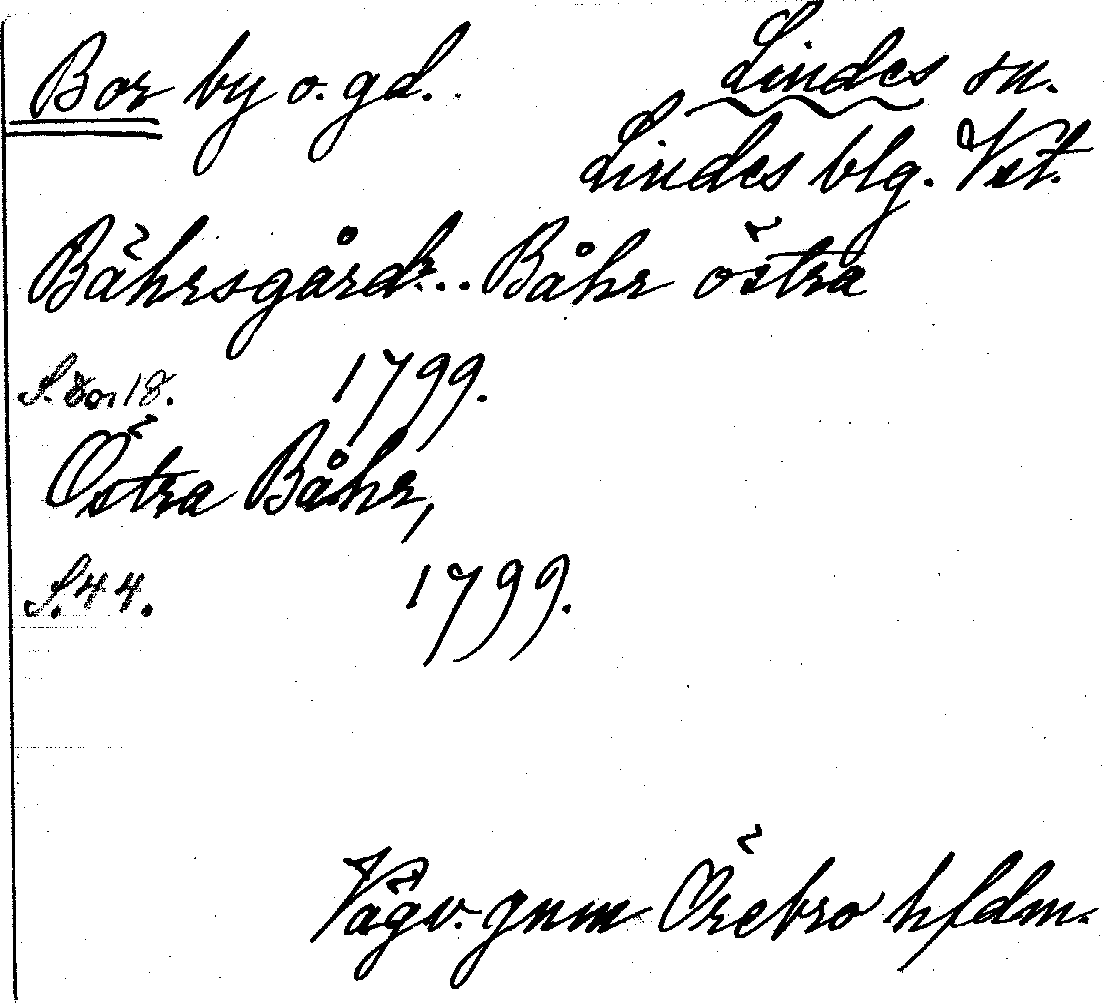 Bor by o. gd. Lindes sn.
Lindes blg. Vst.
Bährsgård... Båhr östra
S. 18. 1799.
Östra Båhr,
S. 44. 1799.
Vägv. gnm Örebro hfdm.